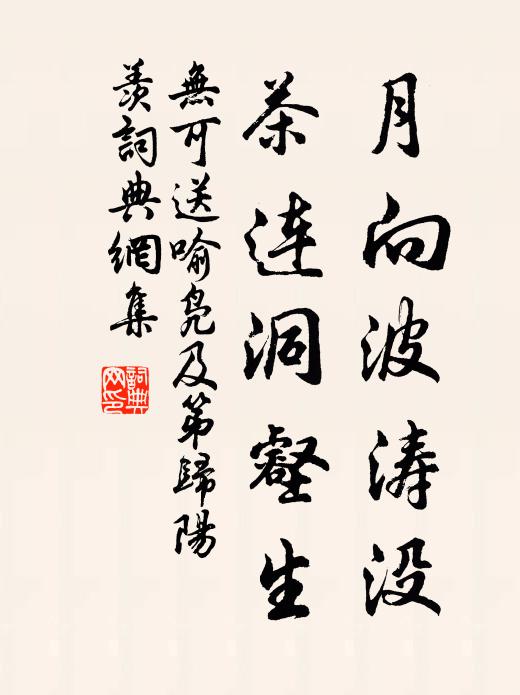 月向波涛没
茶连洞壑生
無可送喻凫及第歸陽
羨詞典網集
詞典网印